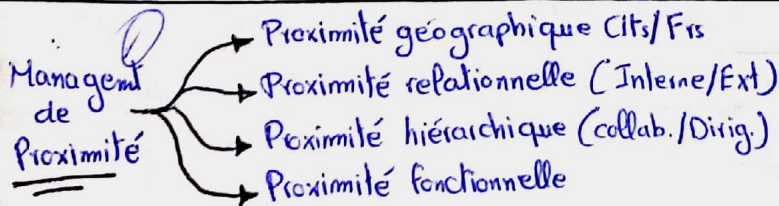 Managemt
de
Proximité
Proximité géographique Clts/Frs
Proximité relationnelle (Interne/Ext)
Proximité hiérarchique (collab./Dirig.)
Proximité fonctionnelle